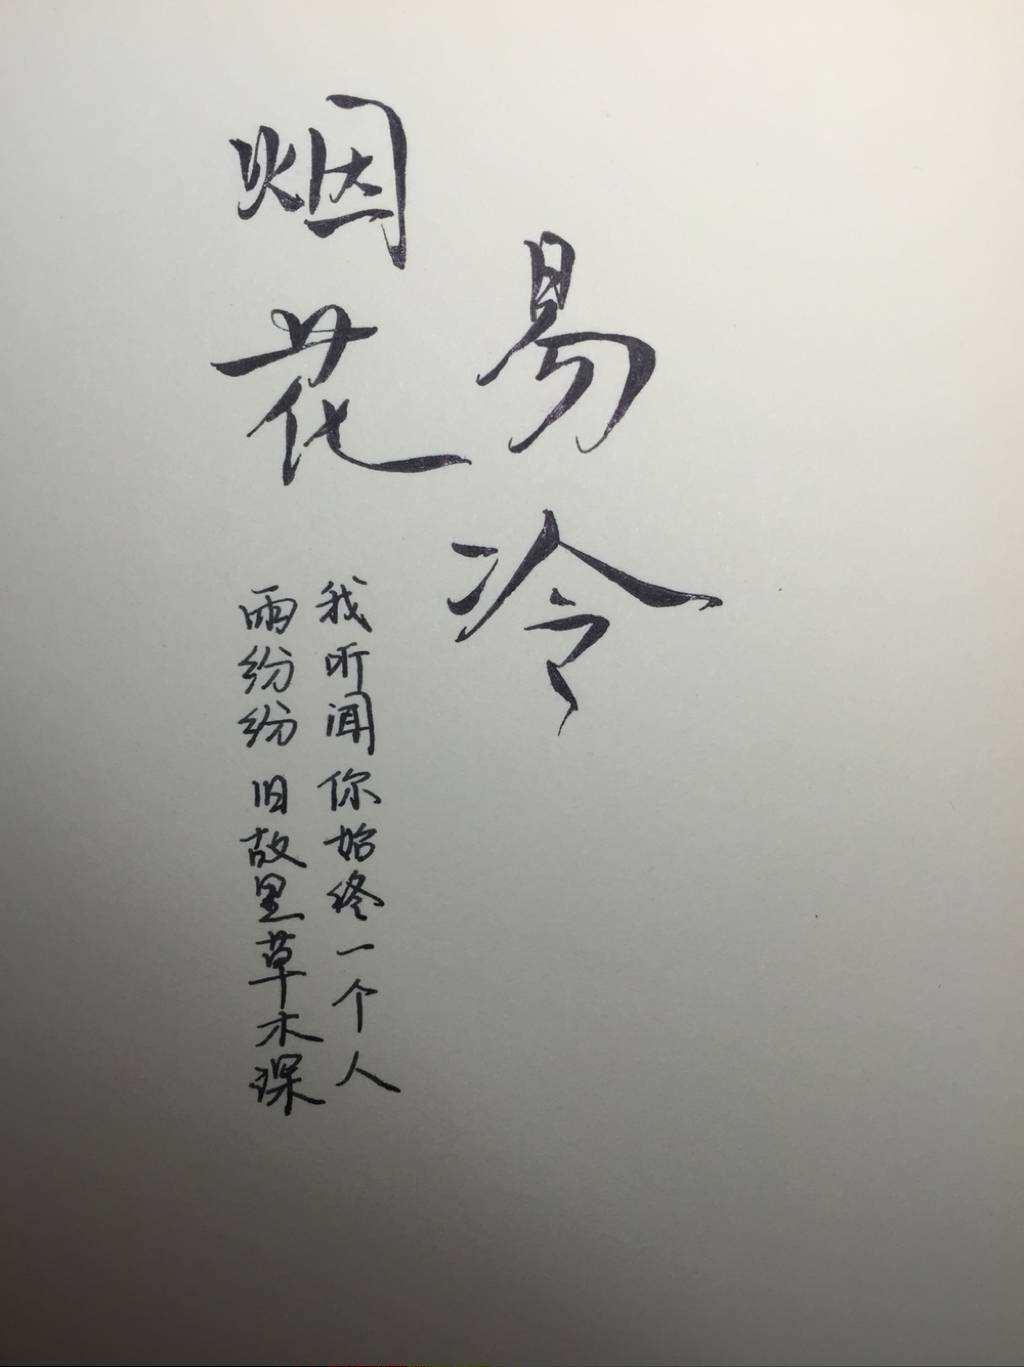 烟花
易冷
雨纷纷 旧故里草木深
我听闻 你始终一个人